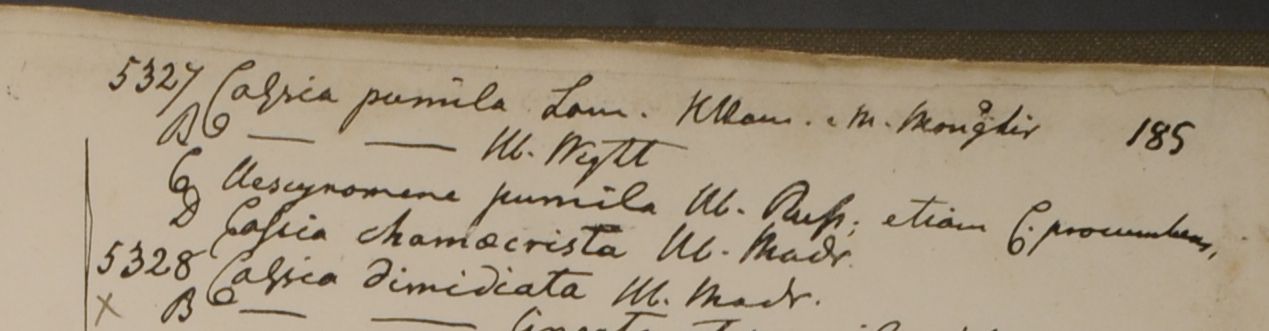 5327 Cassia pumila Lam. HHam. e M. Monghir 185
B C — — Hb. Wight
C Aescynomene pumila Hb. Russ; etiam C. procumbens,
D Cassia chamaecrista Hb. Madr.
5328 Cassia dimidiata Hb. Madr.
× B C — —